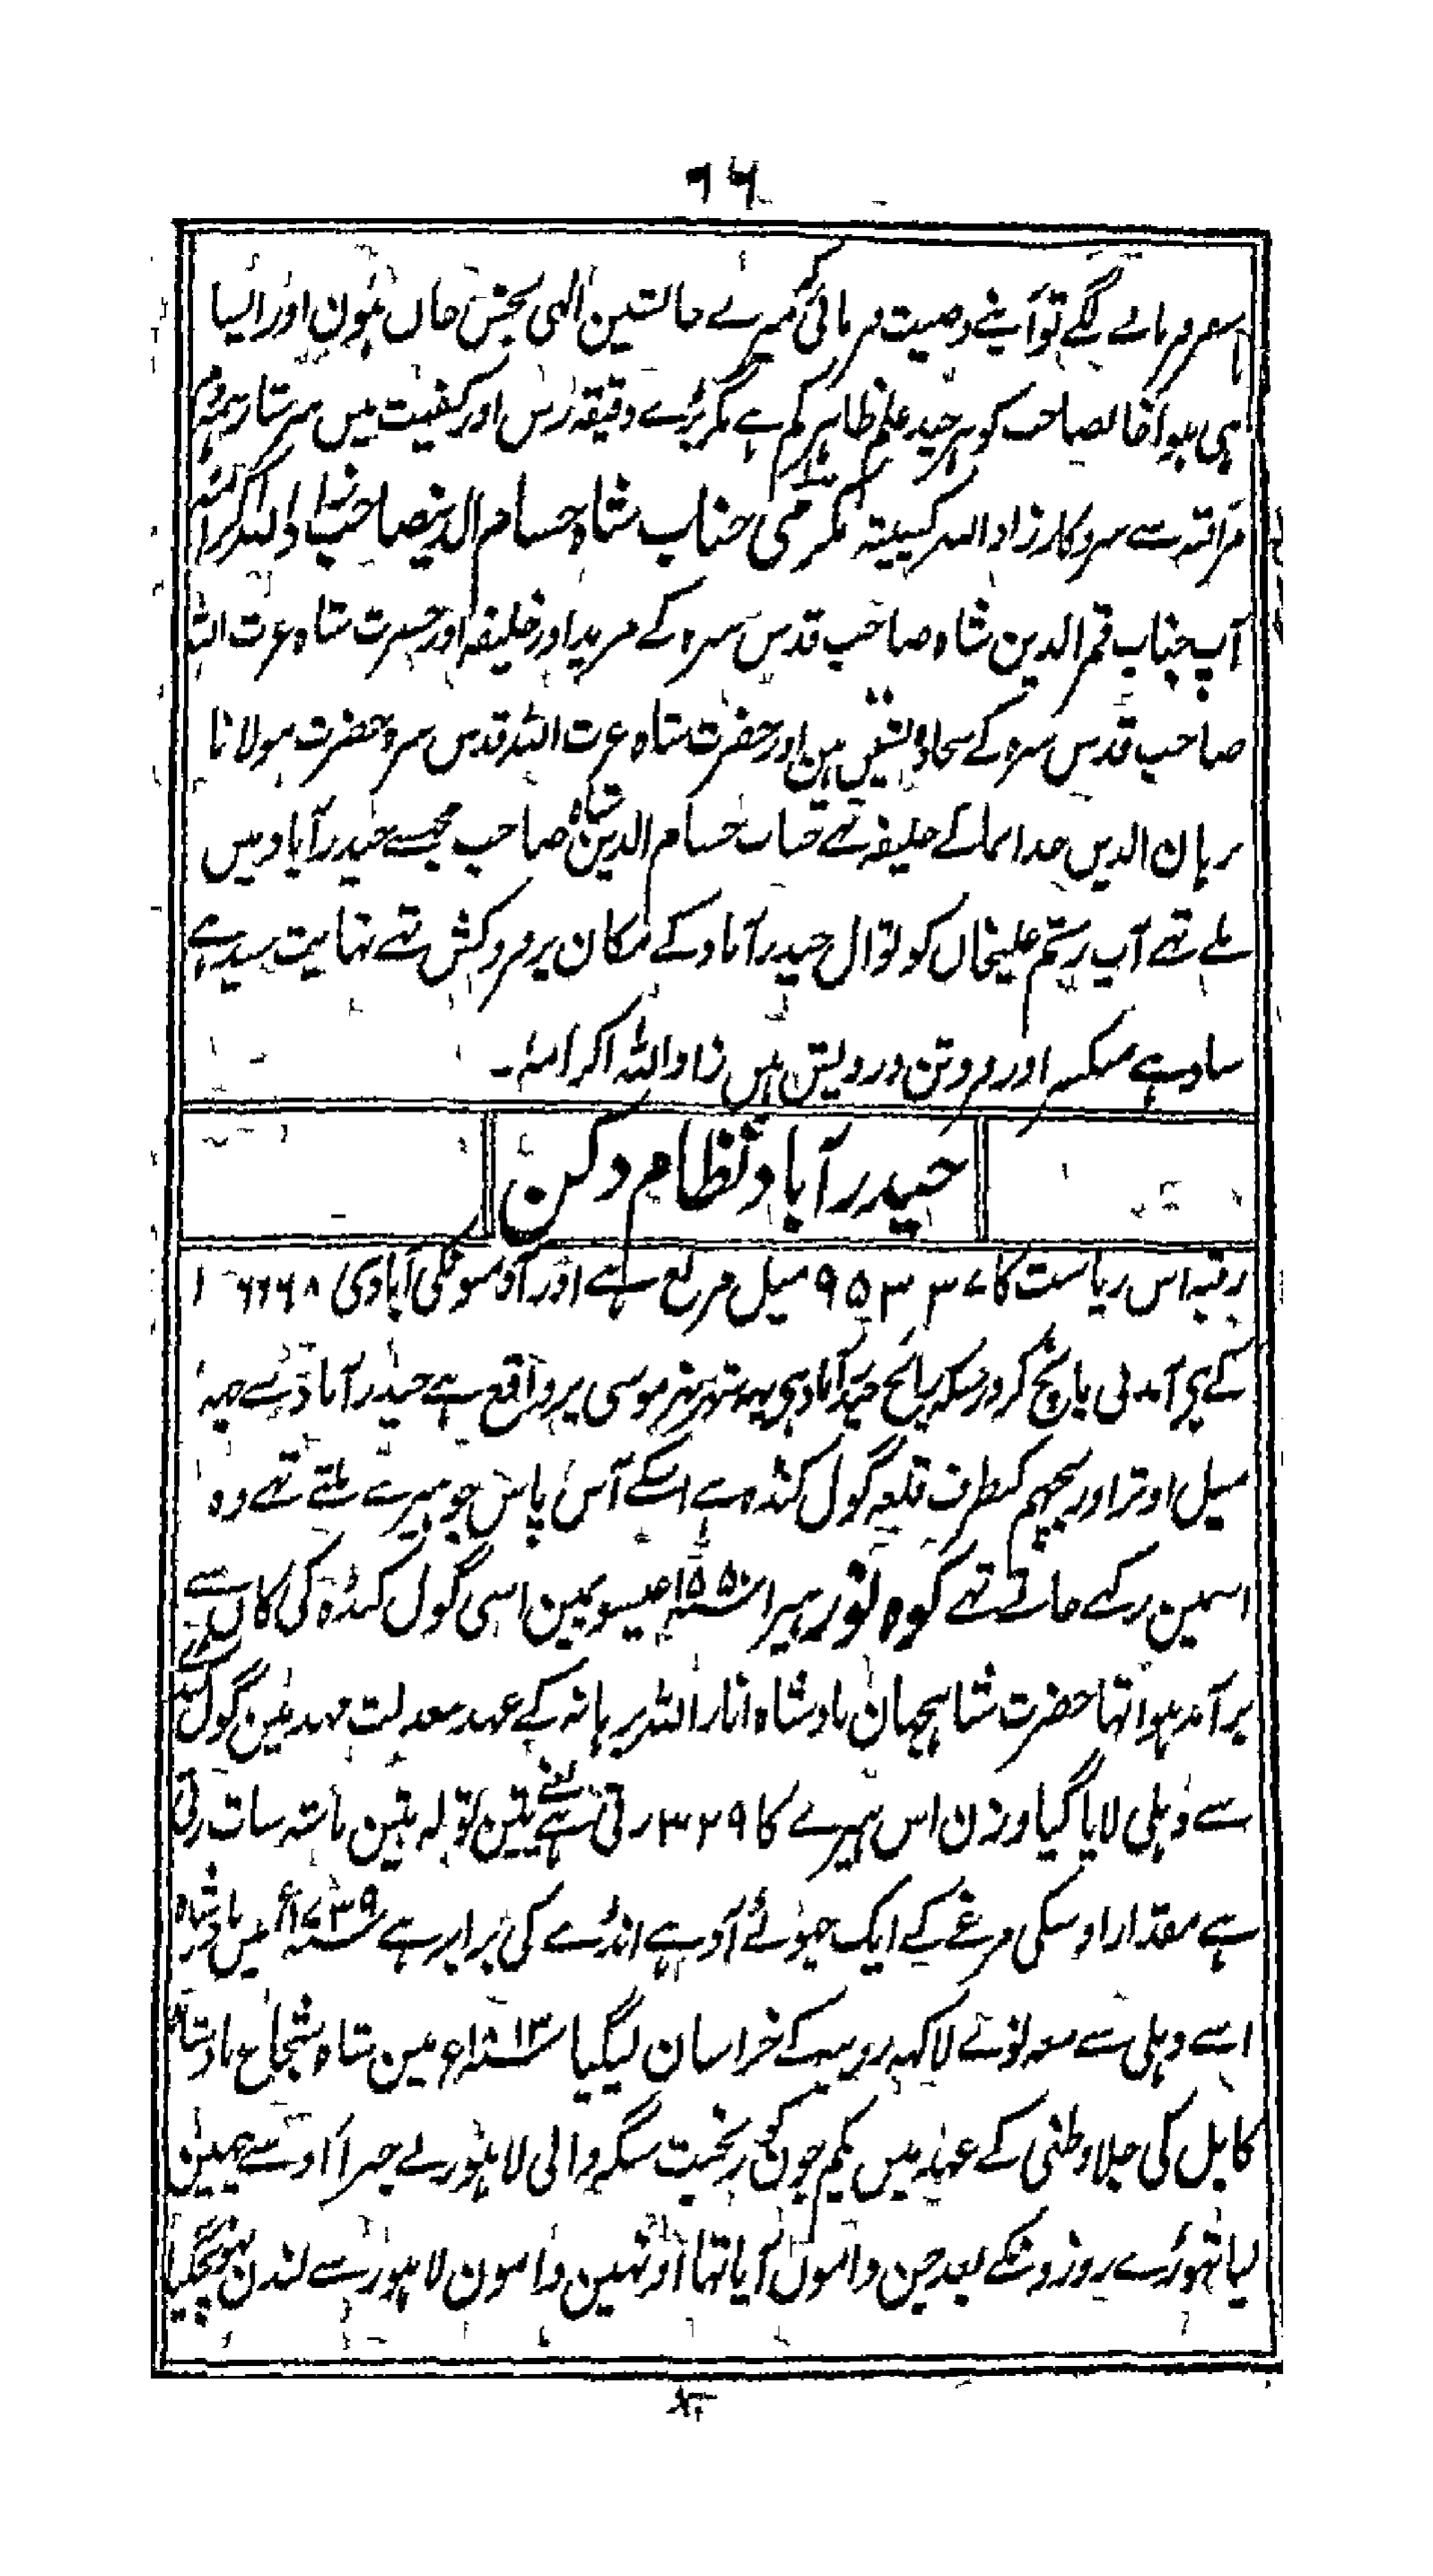 ۶۶
سفر فرمانے لگے تو آپنے وصیت فرمائی کہ میرے جانشین الہی بخش خاں ہون اور ایسا
ہی ہوا خانصاحب کو ہر چند علم ظاہر کم ہے مگر بڑے دقیقہ رس اور کیفیت میں سرشار رہتے ہیں
مراقبہ سے سروکار زاد اللہ کیفیتہ مکرمی جناب شاہ حسام الدینصاحب زاد اللہ اکرامہ
آپ جناب قمر الدین شاہ صاحب قدس سرہ کے مرید اور خلیفہ اور حضرت شاہ عزت اللہ
صاحب قدس سرہ کے سجادہ نشیں ہین اور حضرت شاہ عزت اللہ قدس سرہ حضرت مولانا
برہان الدیں خدانما کے خلیفہ تہے جناب حسام الدین شاہ صاحب مجہسے حیدرآباد میں
ملے تہے آپ رستم علیخاں کوتوال حیدرآباد کے مکان پر فروکش تہے نہایت سیدہے
سادہے منکسر اور فروتن درویش ہیں زاد اللہ اکرامہ۔
حیدرآباد نظام دکن
رقبہ اس ریاست کا ۹۵۳۳۷ میل مربع ہے اور آدمیونکی آبادی
کے ہی آمدنی پانچ کرور سکہ رائج حیدرآباد ہی یہہ شہر نہر موسی پر واقع ہے حیدرآباد سے چہہ
میل اوتر اور پچہم کیطرف قلعہ گول کنڈہ ہے اسکے آس پاس جو ہیرے ملتے تہے وہ
اسمین رکہے جاتے تہے کوہ نور ہیرا سنہ ۱۵۵۰ عیسویمین اسی گول کنڈہ کی کاں سے
برآمد ہوا تہا حضرت شاہجہان بادشاہ انار اللہ برہانہ کے عہد معدلت مہد مین گول کنڈے
سے دہلی لایا گیا وزن اس ہیرے کا ۳۲۹ رتی ہے یعنے تین تولہ تین ماشہ سات رتی
ہے مقدار اوسکی مرغے کے ایک چہوٹے آدہے انڈے کی برابر ہے سنہ ۱۷۳۹ء میں نادر شاہ
اسے دہلی سے معہ نوے لاکہہ روپیہ کے خراسان لیگیا سنہ ۱۸۱۳ء مین شاہ شجاع بادشاہ
کابل کی جلاوطنی کے عہد میں یکم جون کو رنجیت سنگہ والی لاہور نے جبراً اوسے چہین
لیا تہوڑے روزونکے بعد جن داموں آیا تہا اونہین دامون لاہور سے لندن پہونچگیا